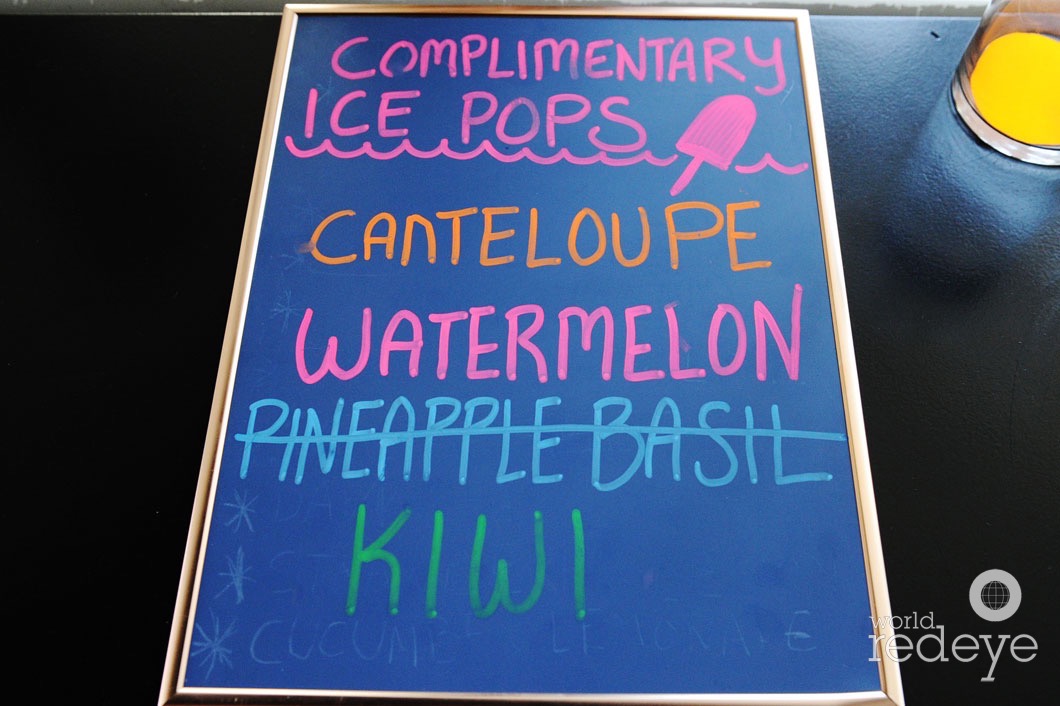 COMPLIMENTARY
ICE POPS
CANTELOUPE
WATERMELON
PINEAPPLE BASIL
KIWI
world
redeye